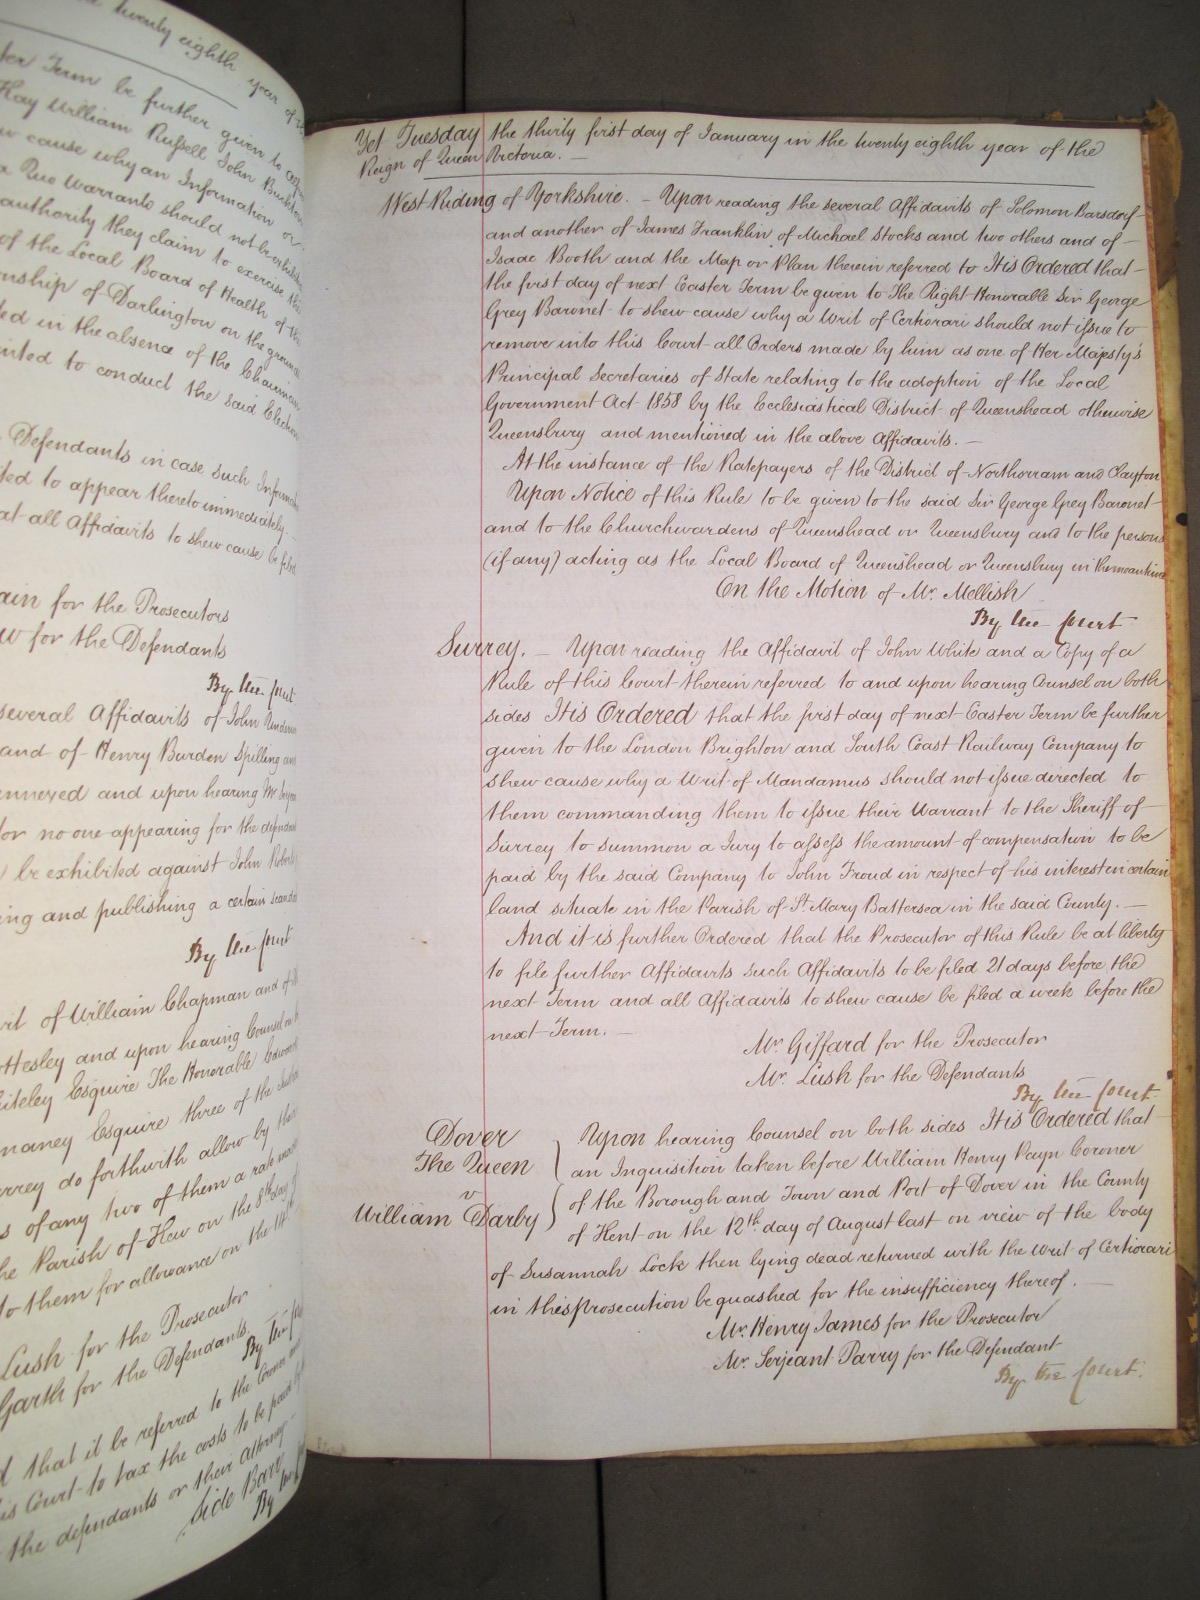 twenty eighth year of
Term be further given to
Hay William Russell John
cause why an Information
Quo Warranto should not be exhibited
authority they claim to exercise the
of the Local Board of Health of the
of Darlington on the ground
in the absence of the Chairman
to conduct the said Election
Defendants in case such
to appear thereto immediately
all Affidavits to shew cause be filed
for the Prosecutors
for the Defendants
By the Court
several Affidavits of John
and of Henry Burden Spilling and
and upon hearing Mr
no one appearing for the
be exhibited against John
and publishing a certain
By the Court
of William Chapman and of
and upon hearing Counsel on
Esquire The Honorable Edward
Esquire three of the
do forthwith allow by
of any two of them a rate
Parish of Kew on the 8th day of
to them for allowance on the 14th
Lush for the Prosecutor
Garth for the Defendants
By the Court
that it be referred to the Coroner and
Court to tax the costs to be paid
the defendants or their Attorney
Side Bar
By the
Yet Tuesday the thirty first day of January in the twenty eighth year of the
Reign of Queen Victoria. —
West Riding of Yorkshire. — Upon reading the several Affidavits of Solomon Barsdorf
and another of James Franklin of Michael Stocks and two others and of
Isaac Booth and the Map or Plan therein referred to It is Ordered that
the first day of next Easter Term be given to The Right Honorable Sir George
Grey Baronet to shew cause why a Writ of Certiorari should not issue to
remove into this Court all Orders made by him as one of Her Majesty's
Principal Secretaries of State relating to the adoption of the Local
Government Act 1858 by the Ecclesiastical District of Queenshead otherwise
Queensbury and mentioned in the above Affidavits. —
At the instance of the Ratepayers of the District of Northowram and Clayton
Upon Notice of this Rule to be given to the said Sir George Grey Baronet
and to the Churchwardens of Queenshead or Queensbury and to the persons
(if any) acting as the Local Board of Queenshead or Queensbury in the meantime
On the Motion of Mr. Mellish
By the Court
Surrey. — Upon reading the Affidavit of John White and a Copy of a
Rule of this Court therein referred to and upon hearing Counsel on both
sides It is Ordered that the first day of next Easter Term be further
given to the London Brighton and South Coast Railway Company to
shew cause why a Writ of Mandamus should not issue directed to
them commanding them to issue their Warrant to the Sheriff of
Surrey to summon a Jury to assess the amount of compensation to be
paid by the said Company to John Froud in respect of his interest in certain
land situate in the Parish of St. Mary Battersea in the said County. —
And it is further Ordered that the Prosecutor of this Rule be at liberty
to file further Affidavits such Affidavits to be filed 21 days before the
next Term and all Affidavits to shew cause be filed a week before the
next Term. —
Mr. Giffard for the Prosecutor
Mr. Lush for the Defendants
By the Court
Dover
The Queen
v
William Darby
Upon hearing Counsel on both sides It is Ordered that
an Inquisition taken before William Henry Payn Coroner
of the Borough and Town and Port of Dover in the County
of Kent on the 12th day of August last on view of the body
of Susannah Lock then lying dead returned with the Writ of Certiorari
in this prosecution be quashed for the insufficiency thereof. —
Mr. Henry James for the Prosecutor
Mr. Serjeant Parry for the Defendant
By the Court.